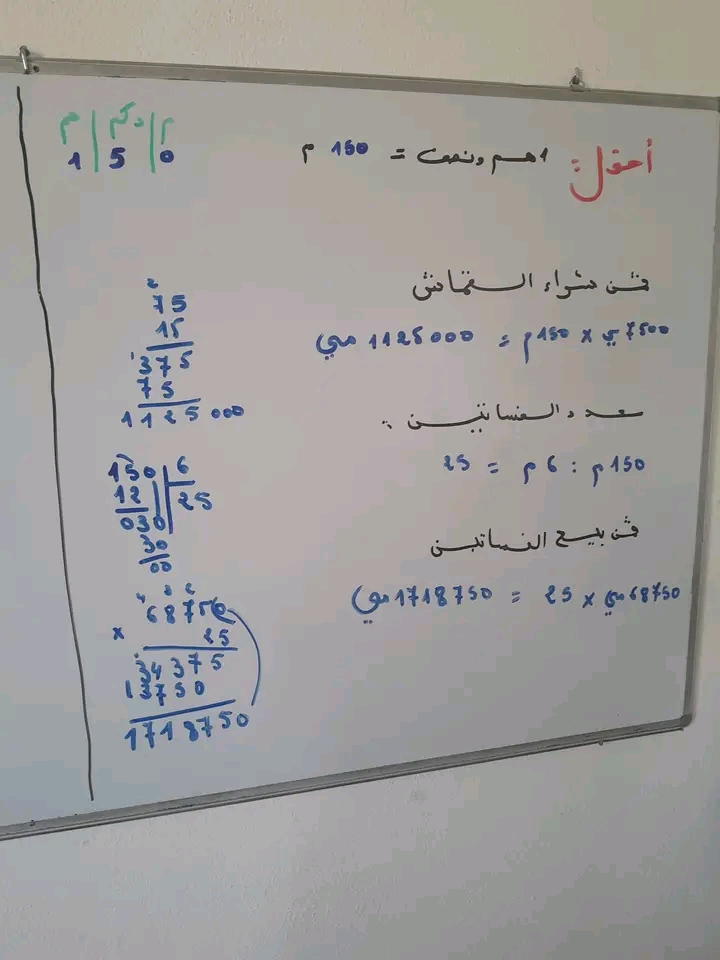 أحول: 1 هم ونصف = 150 م
ثمن شراء القماش
7500 مي x 150 م = 1125000 مي
عدد الفساتين :
150 م : 6 م = 25
ثمن بيع الفساتين
68750 مي x 25 = 1718750 مي
م | دكم | م
1 | 5 | 0
2
75
15
1
375
75
1125000
150 | 6
12 | 25
030
30
00
4 3 2
68750
x 25
34375
13750
1718750